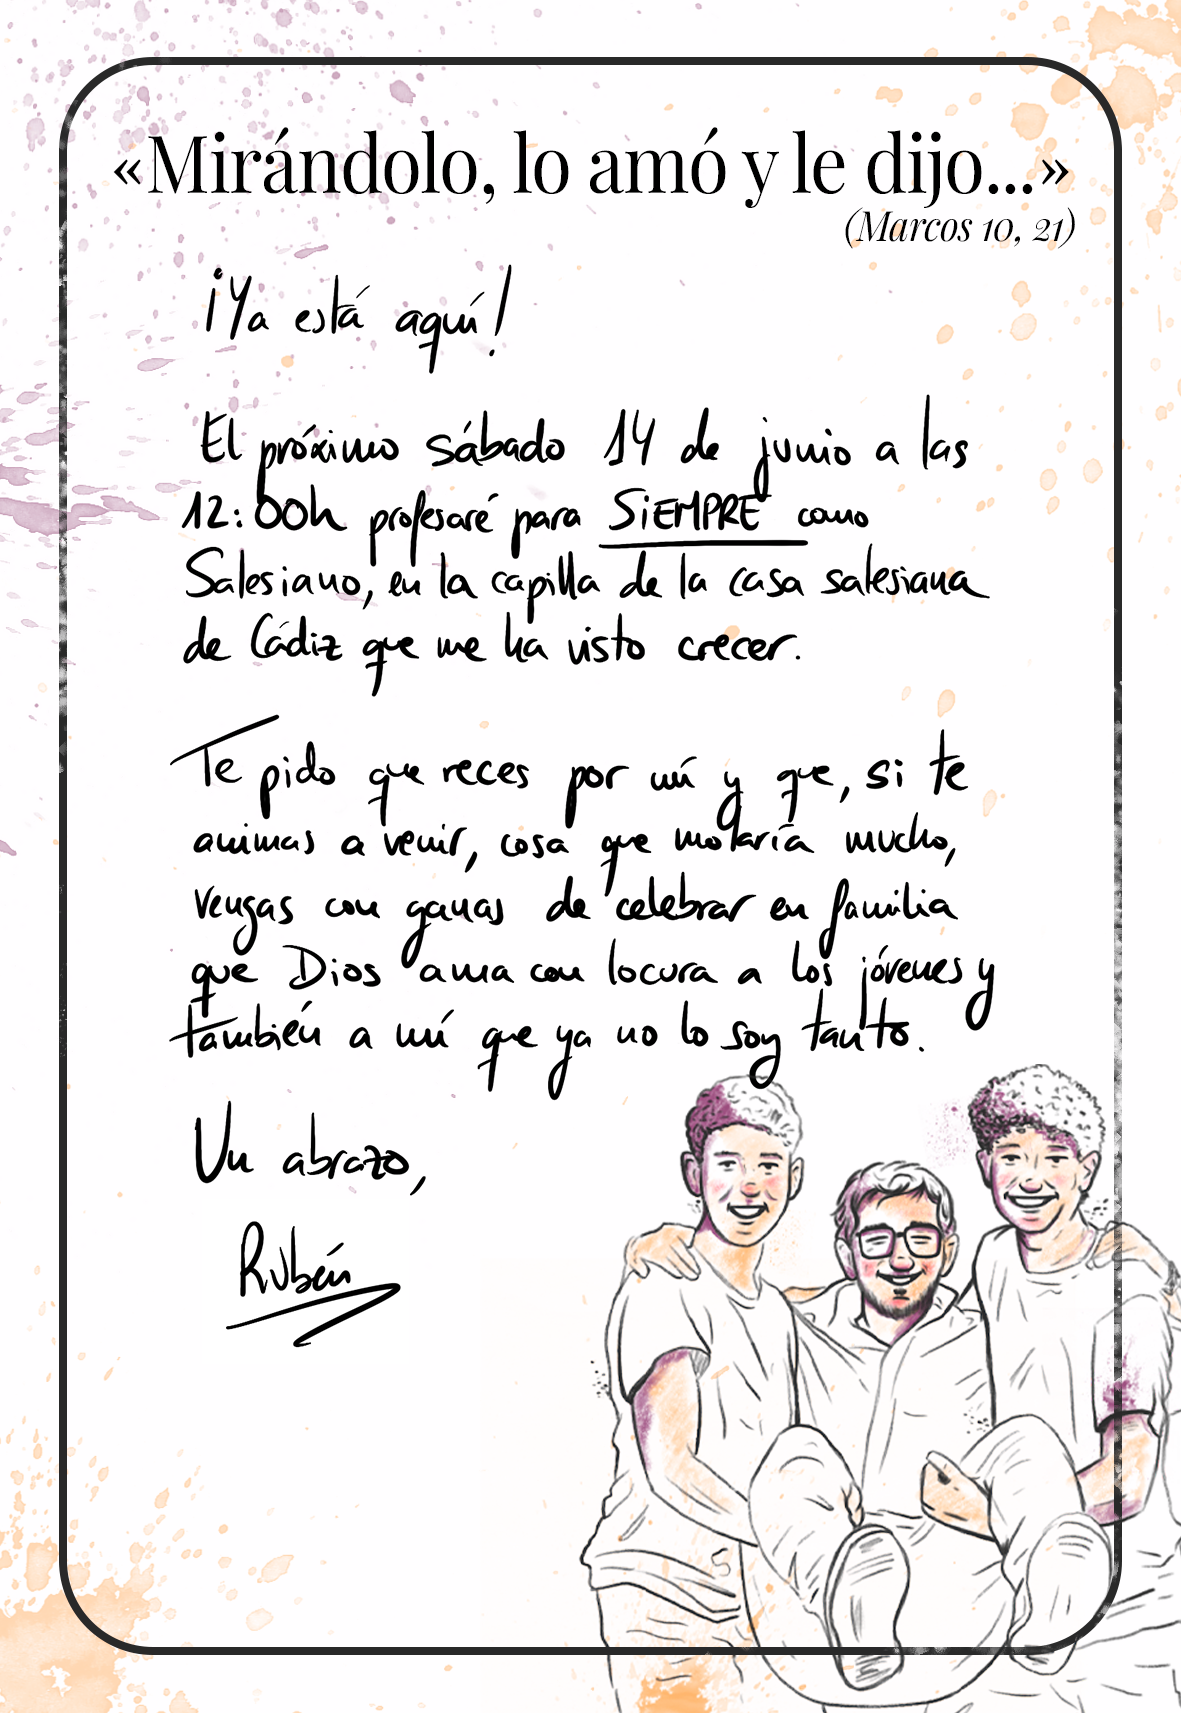 «Mirándolo, lo amó y le dijo...»
(Marcos 10, 21)
¡Ya está aquí!
El próximo sábado 14 de junio a las
12:00h profesaré para SiEMPRE como
Salesiano, en la capilla de la casa salesiana
de Cádiz que me ha visto crecer.
Te pido que reces por mí y que, si te
animas a venir, cosa que molaría mucho,
vengas con ganas de celebrar en familia
que Dios ama con locura a los jóvenes y
también a mí que ya no lo soy tanto.
Un abrazo,
Rubén